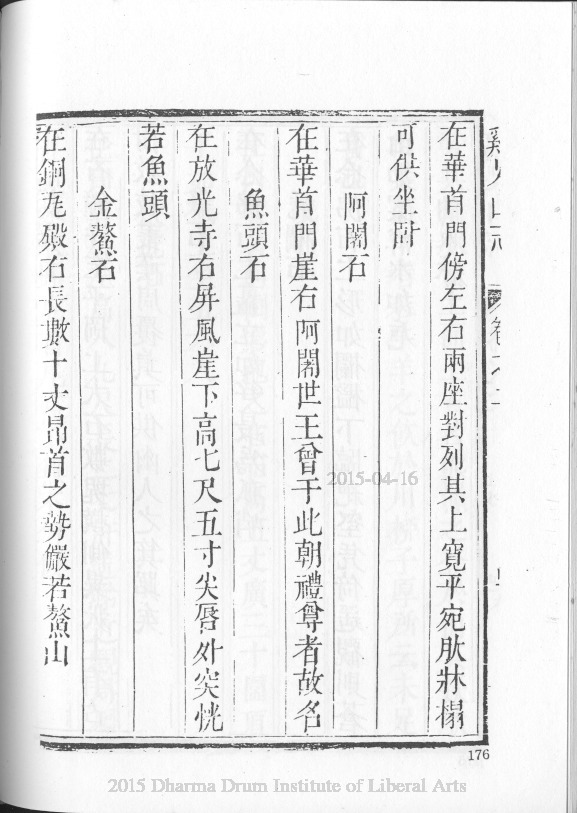 雞足山志 卷之
在華首門傍左右兩座對列其上寬平宛肰牀榻
可供坐卧
阿闍石
在華首門崖右阿闍世王曾于此朝禮尊者故名
魚頭石
在放光寺右屏風崖下高七尺五寸尖唇外突恍
若魚頭
金鰲石
在銅瓦殿右長數十丈昂首之勢儼若鰲山
2015-04-16
176
2015 Dharma Drum Institute of Liberal Arts